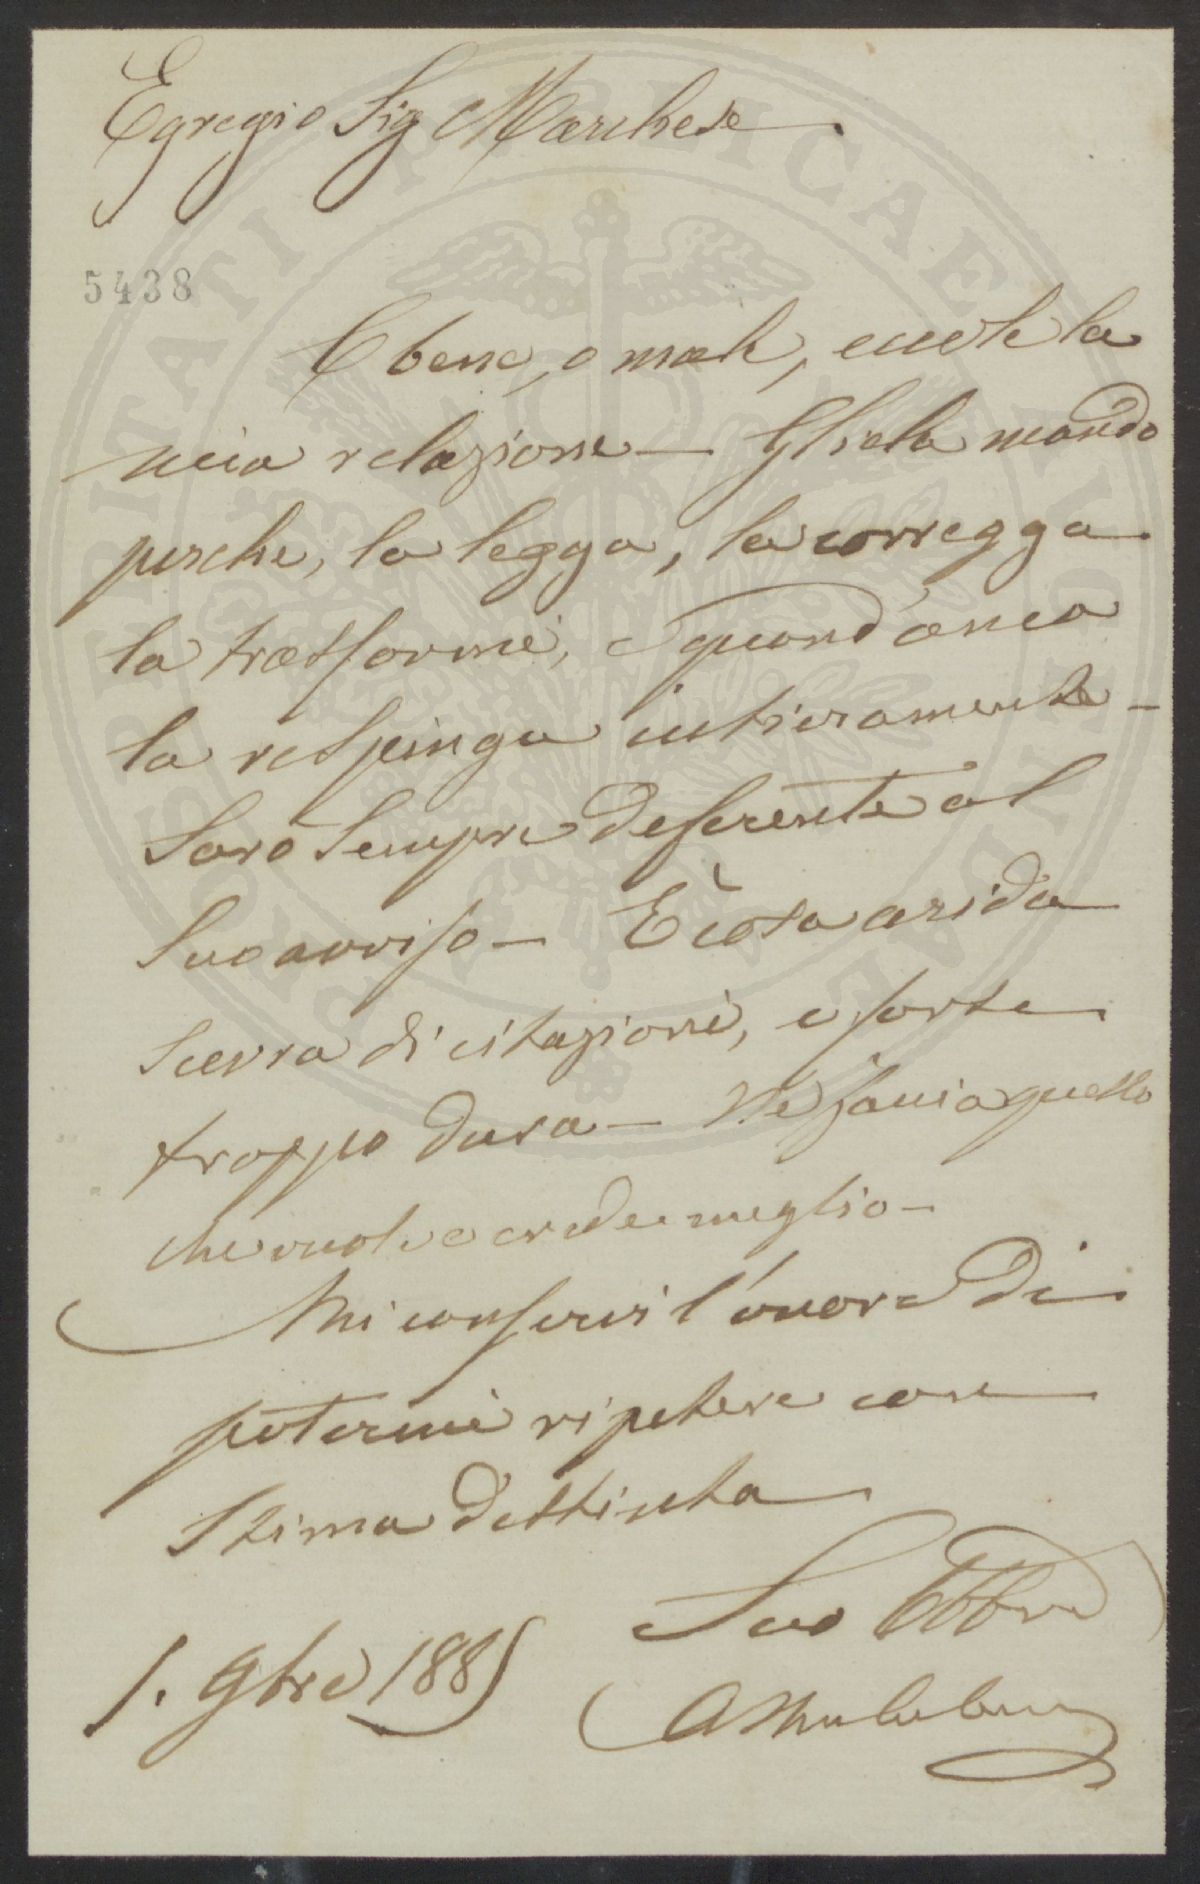 Egregio Sig Marchese
5438
O bene, o male, eccole la
mia relazione — Gliela mando
perche, la legga, la corregga
la trasformi, e quand'anco
la respinga intieramente —
Sarò sempre deferente al
Suo avviso — È cosa arida
scevra di citazioni, e forse
troppo dura — Ne faccia quello
che vuole e crede meglio —
Mi conservi l'onore di
potermi ripetere con
stima distinta
Suo Obbmo
1. 9bre 1885
PROSPERITATI PUBLICAE AUGENDAE